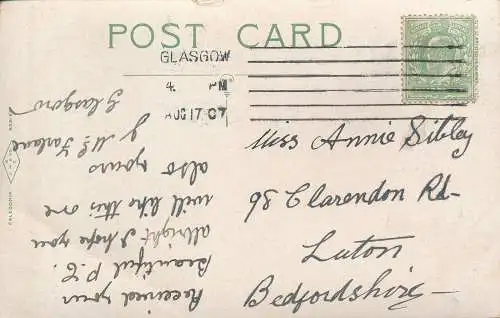 POST CARD
GLASGOW
4 PM
AUG 17 07
Miss Annie Sibley
98 Clarendon Rd
Luton
Bedfordshire
Received your
Beautiful P.C.
allright I hope you
will like this one
also yours
J McFarlane
Glasgow
CALEDONIA
SERIES